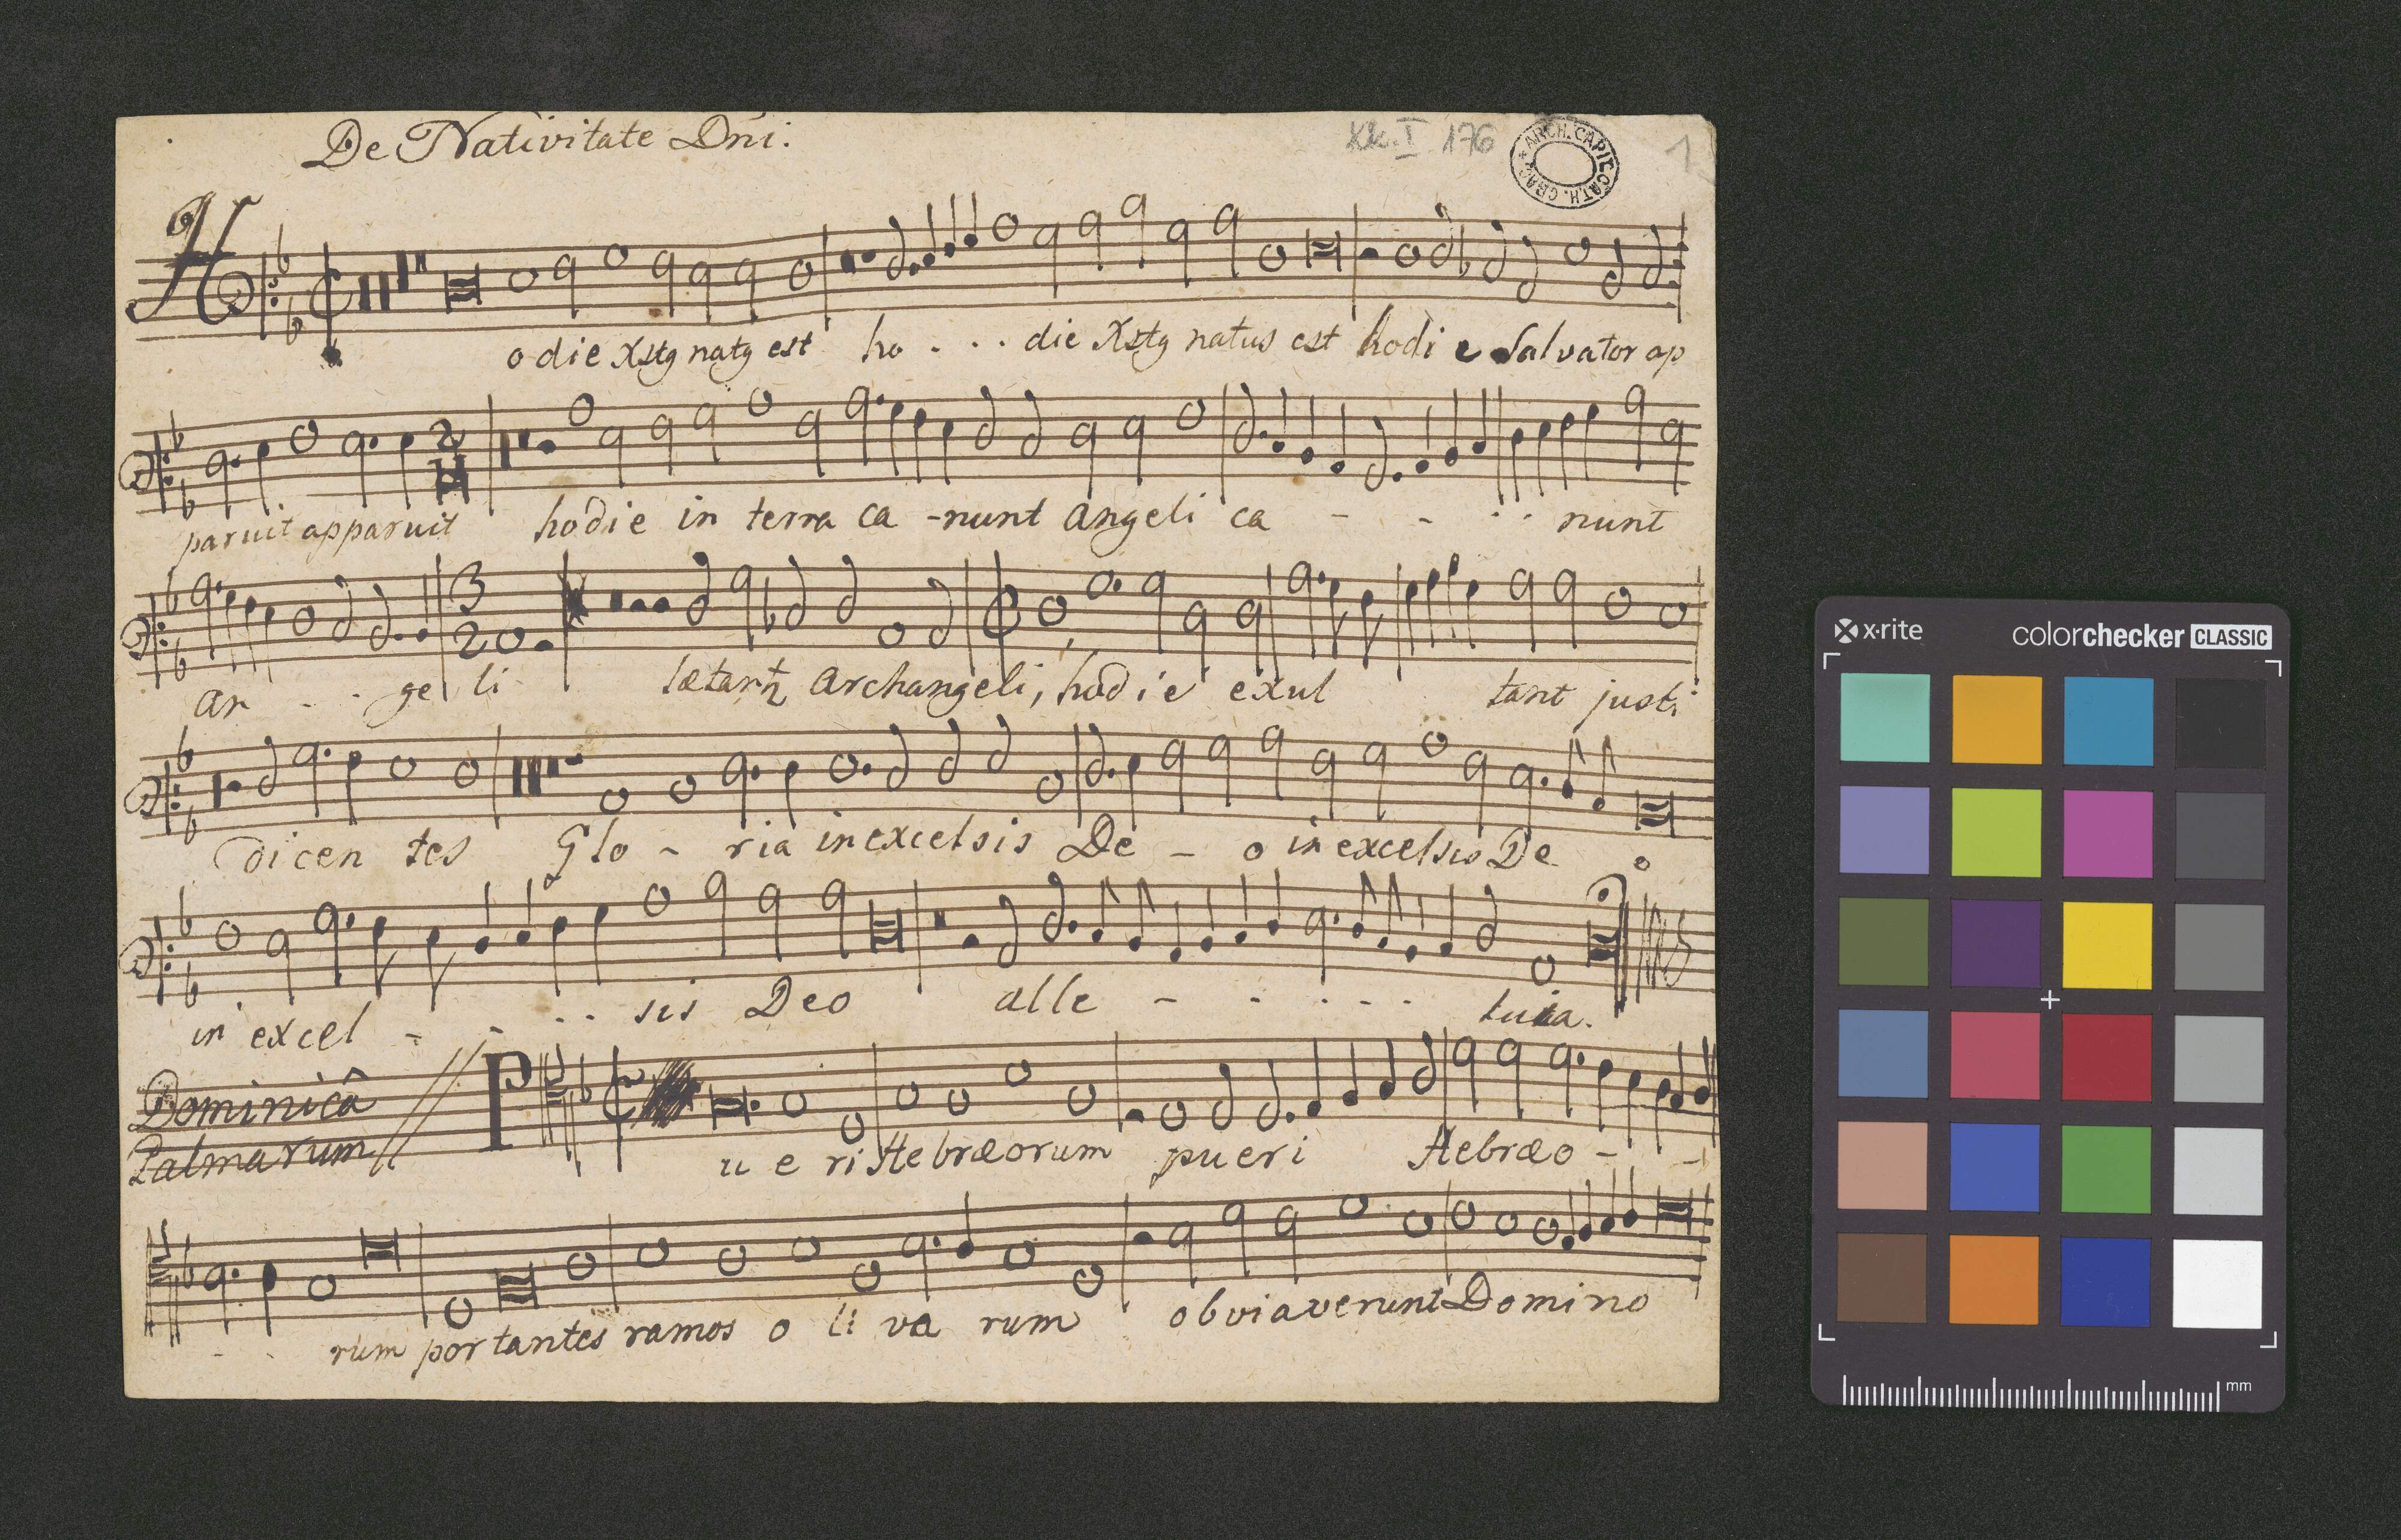 De Nativitate Dñi:
Kk. I 176
ARCH. CAPIT. CATH. CRAC.
1
H
odie Xstg natg est ho - - - die Xstg natus est hodie Salvator ap
paruit apparuit hodie in terra ca - nunt Angeli ca - - - - nunt
3
2
ar - - geli lætantr archangeli, hodie exul tant justi
dicen tes Glo - ria in excelsis De - o in excelsis De o
in excel - - - - sis Deo alle - - - - - luia.
Dominicâ
Palmarum//
P
u e ri Hebræorum pueri Hebræo - -
- - rum portantes ramos o li va rum obviaverunt Domino
x·rite
colorchecker CLASSIC
mm